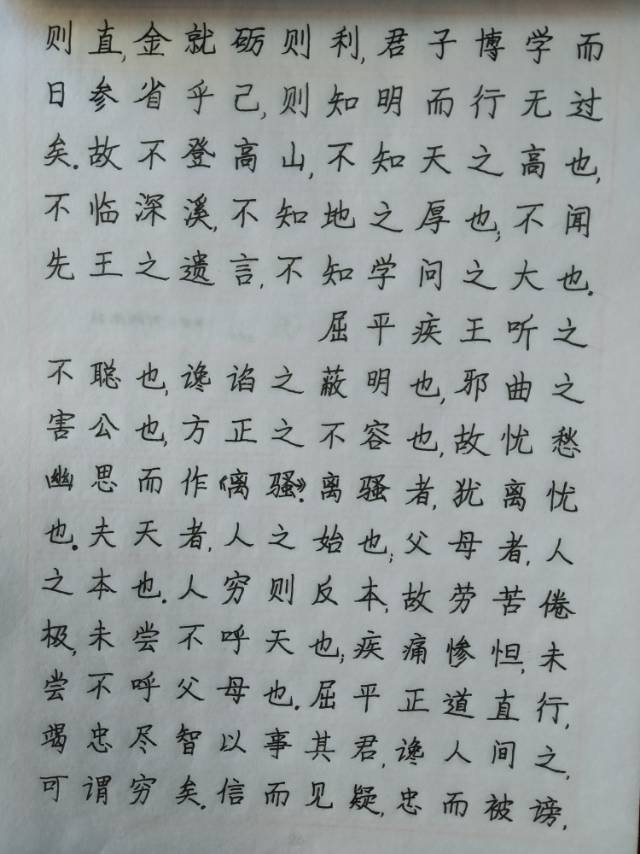 则直,金就砺则利,君子博学而
日参省乎己,则知明而行无过
矣.故不登高山,不知天之高也,
不临深溪,不知地之厚也;不闻
先王之遗言,不知学问之大也.
屈平疾王听之
不聪也,谗谄之蔽明也,邪曲之
害公也,方正之不容也,故忧愁
幽思而作《离骚》.离骚者,犹离忧
也.夫天者,人之始也;父母者,人
之本也.人穷则反本,故劳苦倦
极,未尝不呼天也;疾痛惨怛,未
尝不呼父母也.屈平正道直行,
竭忠尽智以事其君,谗人间之,
可谓穷矣.信而见疑,忠而被谤,